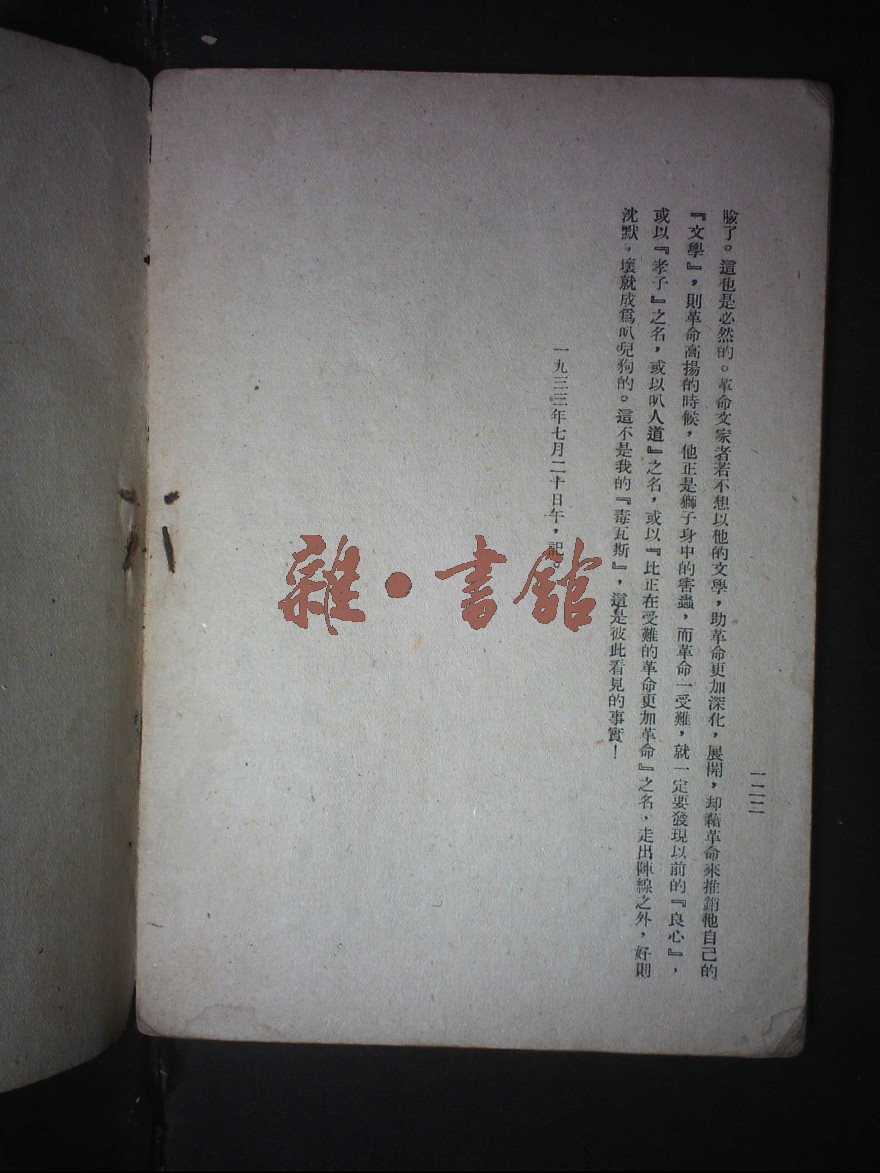 一二二
臉了。這也是必然的。革命文家者若不想以他的文學，助革命更加深化，展開，却藉革命來推銷他自己的
『文學』，則革命高揚的時候，他正是獅子身中的害蟲，而革命一受難，就一定要發現以前的『良心』，
或以『孝子』之名，或以叭人道』之名，或以『比正在受難的革命更加革命』之名，走出陣線之外，好則
沈默，壞就成爲叭兒狗的。這不是我的『毒瓦斯』，這是彼此看見的事實！
一九三三年七月二十日午，記。
雜·書館